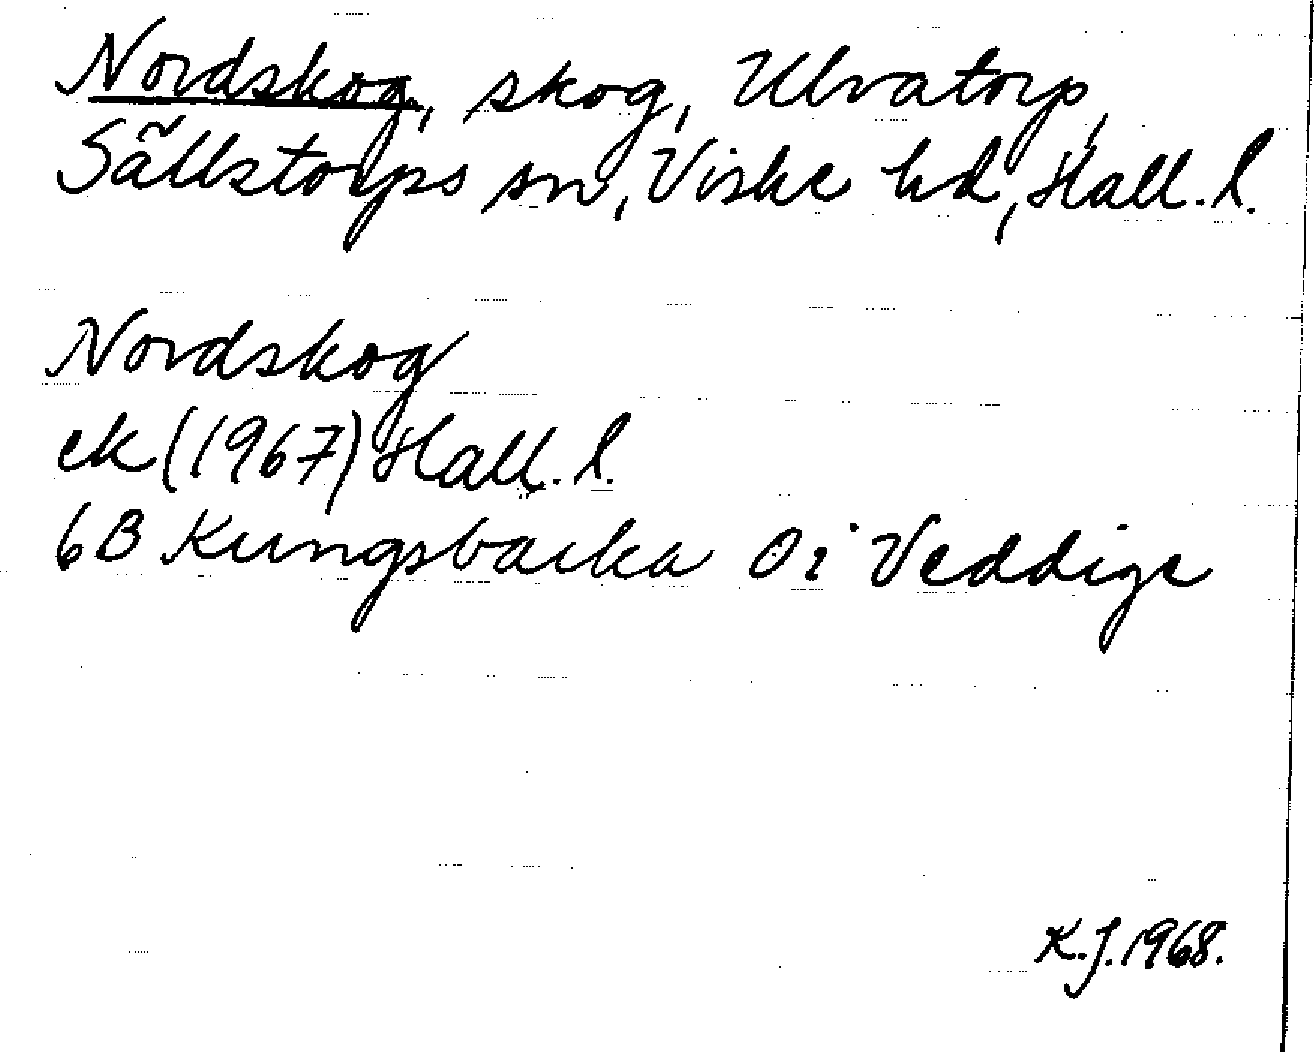 Nordskog, skog, Ulvatorp,
Sällstorps sn, Viske hd, Hall. l.
Nordskog
ek (1967) Hall. l.
6B Kungsbacka 0i Veddige
K.J. 1968.